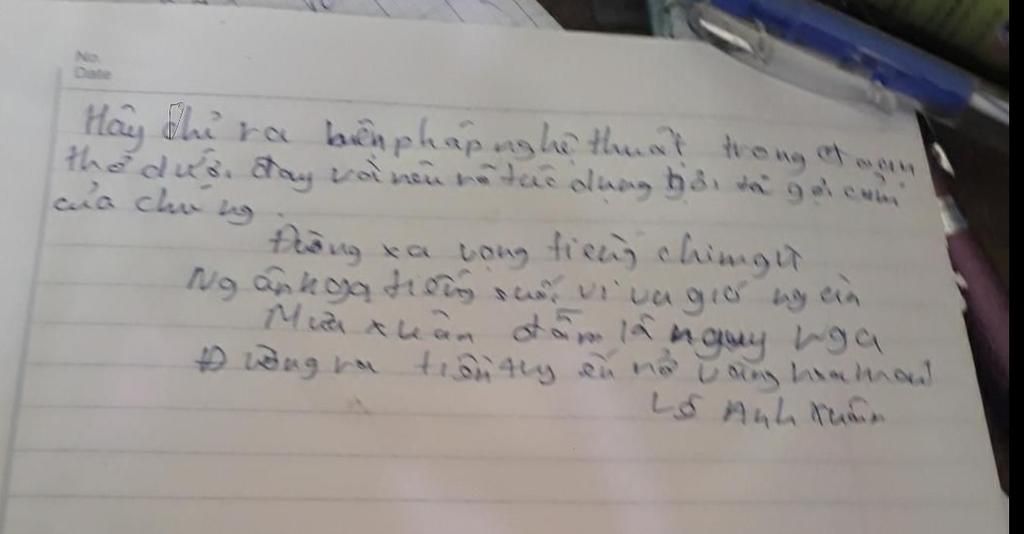 No.
Date
Hãy chỉ ra biện pháp nghệ thuật trong đoạn
thơ dưới đây và nêu rõ tác dụng gợi cảm
của chúng.
Đường xa vọng tiếng chim gù
Ngân nga tiếng suối vi vu gió ngàn
Mưa xuân đẫm lá nguỵ nga
Đường ra tiền tuyến nở vàng hoa mai
Lê Anh Xuân